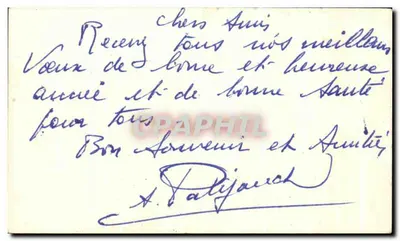 Chers Amis
Recevez tous nos meilleurs
Vœux de bonne et heureuse
année et de bonne santé
pour tous
Bon Souvenir et Amitiés
A.